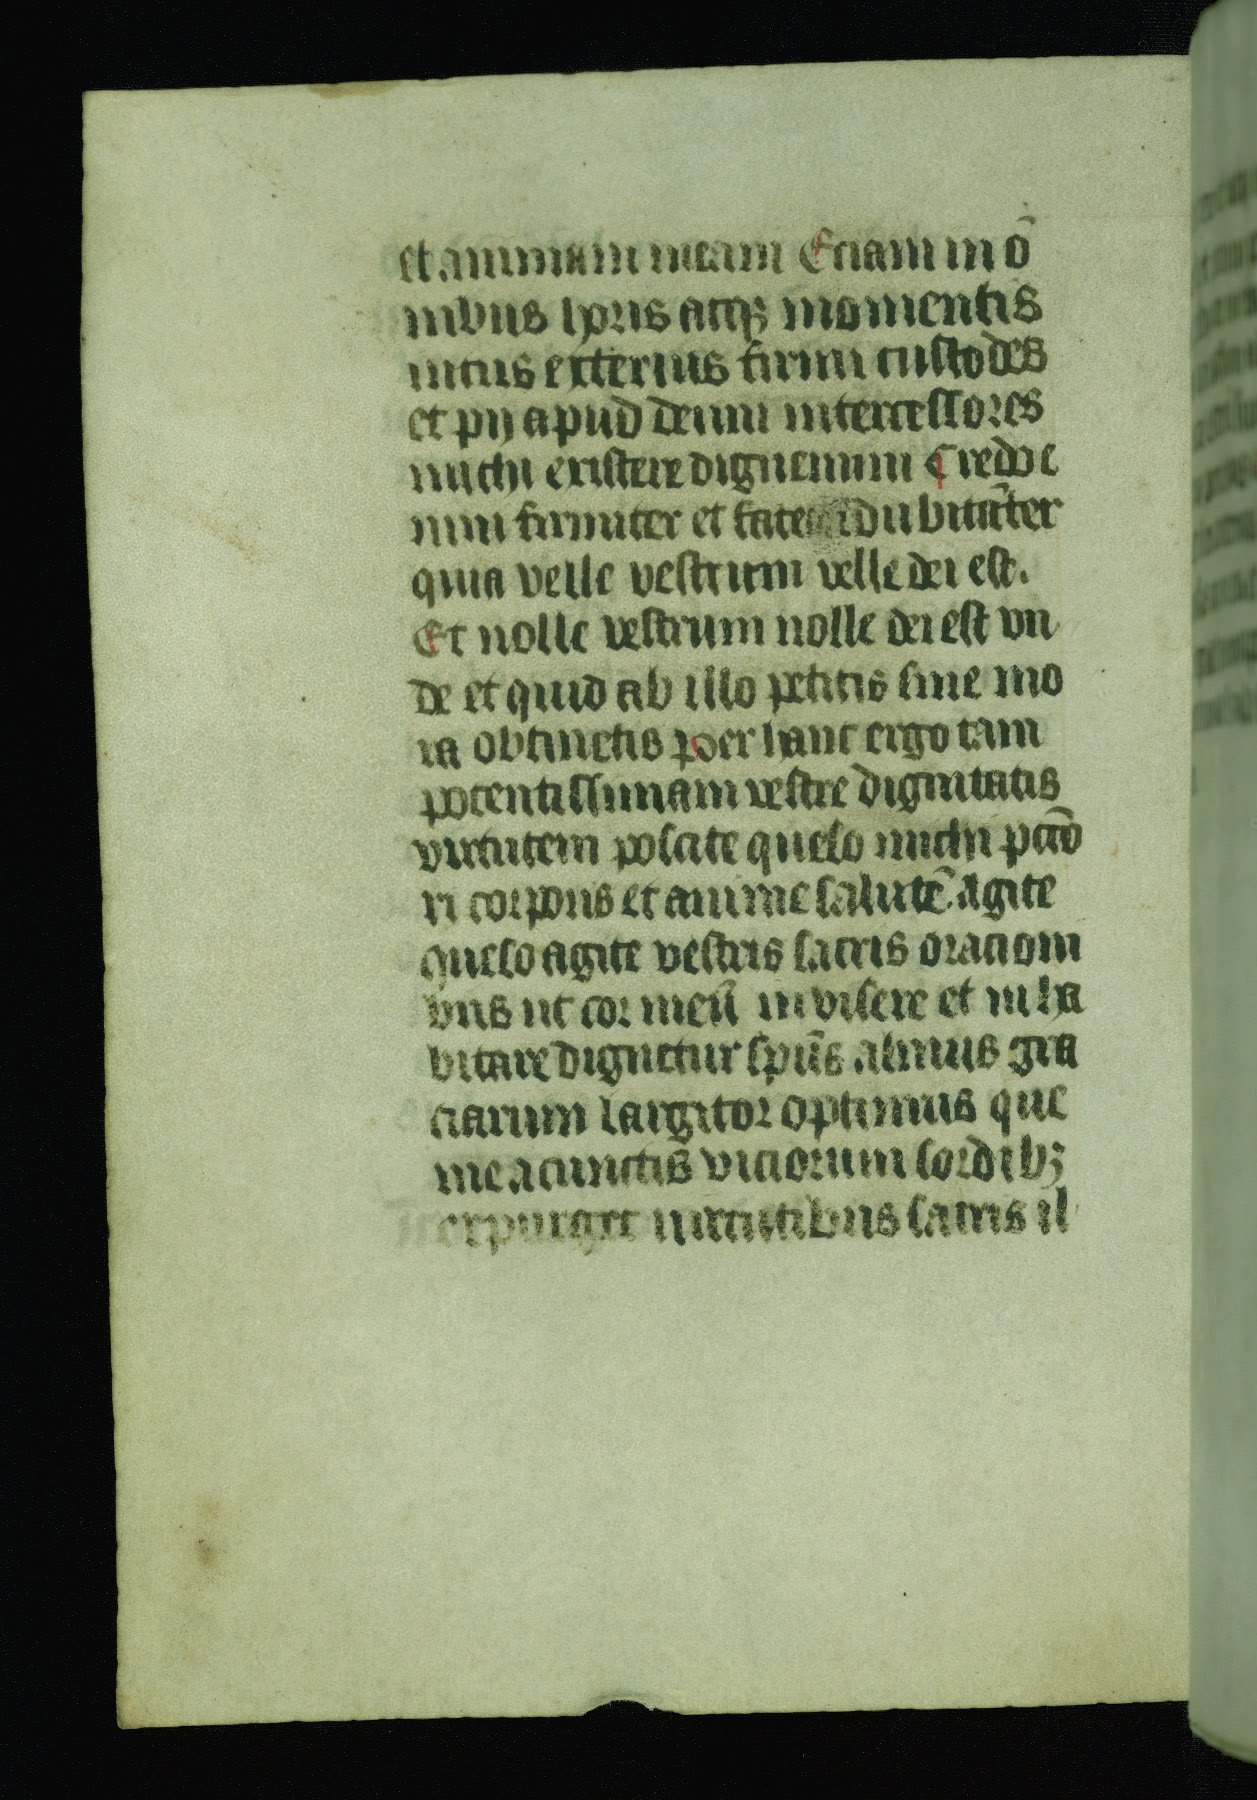 et animam meam Eciam in o̅
nibus horis atqꝫ momentis
intus exterius firmi custodes
et pij apud deum intercessores
michi existere dignemini Credo e
nim firmiter et fateor idubitāter
quia velle vestrum velle dei est.
Et nolle vestrum nolle dei est vn
de et quid ab illo petitis sine mo
ra obtinetis Per hanc ergo tam
potentissimam vestre dignitatis
virtutem poscate queso michi pctō
ri corporis et anime salutē. Agite
queso agite vestris sacris oracioni
bus ut cor meū invisere et inha
bitare dignetur spūs almus gra
ciarum largitor optimus que
me a cunctis viciorum sordibꝫ
expurget uirtutibus sacris il